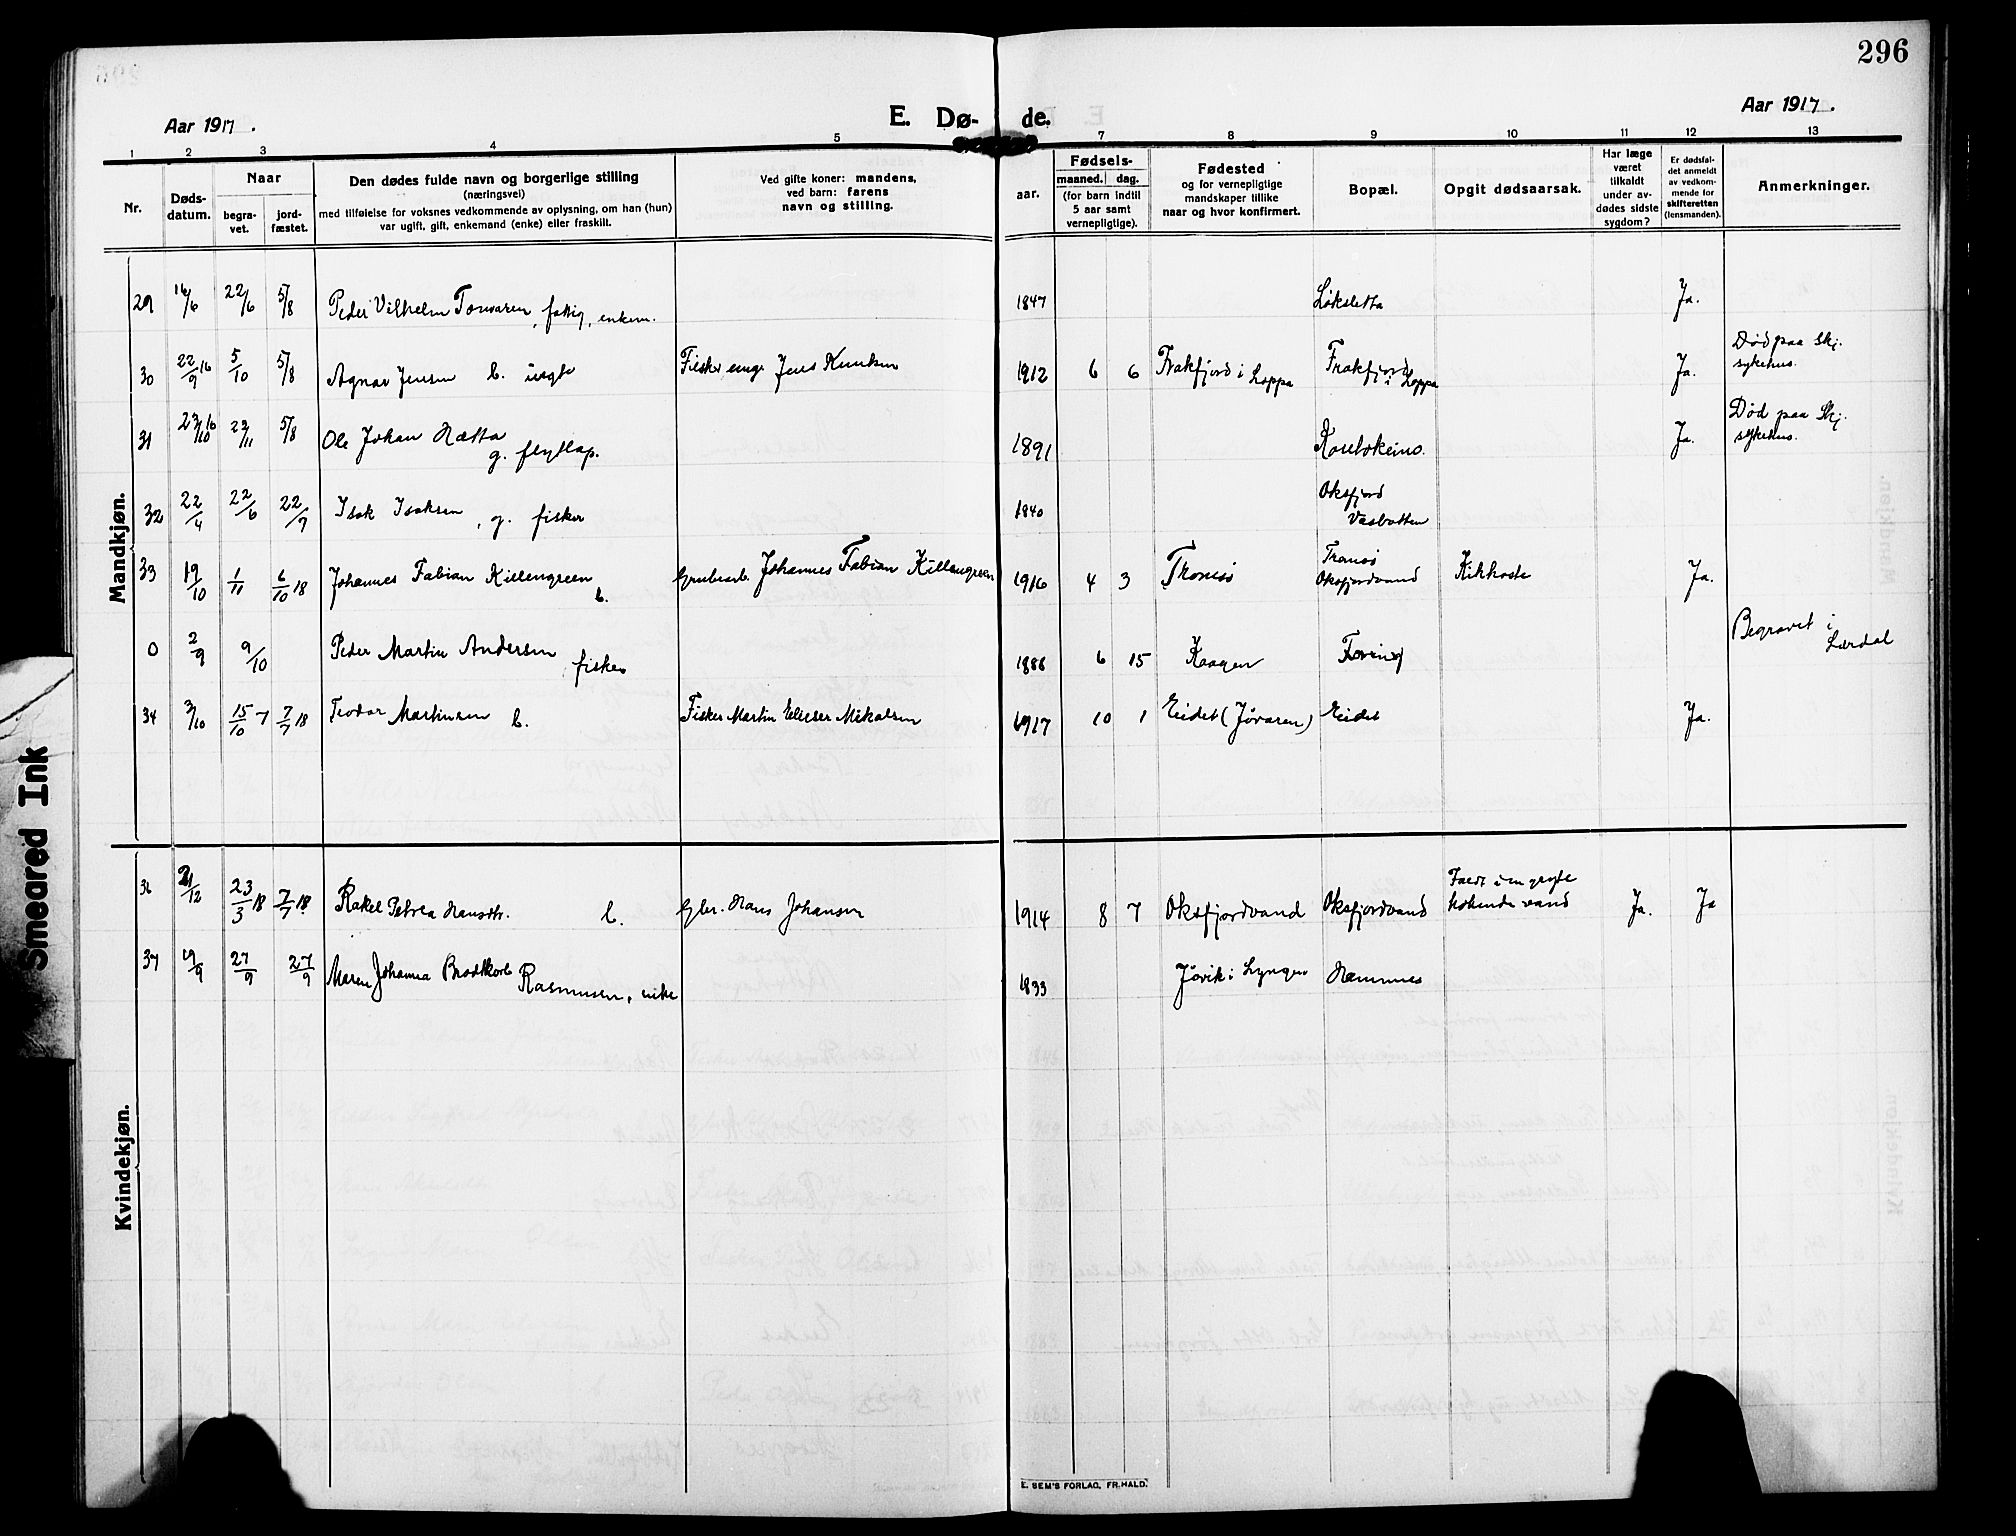 296
Aar 1917.
E. Dø-
de.
Aar 1917.
1 2 3 4 5 7 8 9 10 11 12 13
Nr.
Døds-
datum.
Naar
begra-
vet.
jord-
fæstet.
Den dødes fulde navn og borgerlige stilling
(næringsvei)
med tilføielse for voksnes vedkommende av oplysning, om han (hun)
var ugift, gift, enkemand (enke) eller fraskilt.
Ved gifte koner: mandens,
ved barn: farens
navn og stilling.
aar.
Fødsels-
maaned. dag.
(for barn indtil
5 aar samt
vernepligtige).
Fødested
og for vernepligtige
mandskaper tillike
naar og hvor konfirmert.
Bopæl.
Opgit dødsaarsak.
Har læge
været
tilkaldt
under av-
dødes sidste
sygdom?
Er dødsfal-
det anmeldt
av vedkom-
mende for
skifteretten
(lensmanden).
Anmerkninger.
Mandkjøn.
29 16/6 22/6 5/8 Peder Vilhelm , fattig, enkem. 1847 Løksletta Ja.
30 22/9 16 5/10 5/8 Agnar Jensen b. Fisker Jens Knutsen 1912 6 6 Frakfjord i Loppa Frakfjord i Loppa Ja. Død paa Skj. sykehus.
31 23/10 16 22/11 5/8 Ole Johan Hætta g. flytlap. 1891 Ja. Død paa Skj. sykehus.
32 22/4 22/6 22/9 Isak Isaksen, g. fisker 1840 Oksfjord Vasbotten
33 19/10 1/11 6/10 18 Johannes Fabian Killengreen b. Grubearb. Johannes Fabian Killengreen 1916 4 3 Tromsø Tromsø Oksfjordvand Kikhoste Ja.
0 2/9 9/10 Peder Martin Andersen fisker 1886 6 15 Kaagen Begravet i Lærdal
34 3/10 15/10 7 7/7 18 Teodor Martinsen b. Fisker Martin Elieser Mikalsen 1917 10 1 Eidet (Jøvaren) Eidet Ja.
Kvindekjøn.
36 21/12 23/3 18 7/7 18 Rakel Petrea Hansdtr. b. Gbr. Hans Johansen 1914 8 7 Oksfjordvand Oksfjordvand Faldt i en gryte kokende vand Ja. Ja
37 19/9 27/9 27/9 Maren Johanna Brodtkorb Rasmussen, enke 1833 Jøvik i Lyngen Hamnnes
E. SEM'S FORLAG, FR.HALD.
Smeared Ink